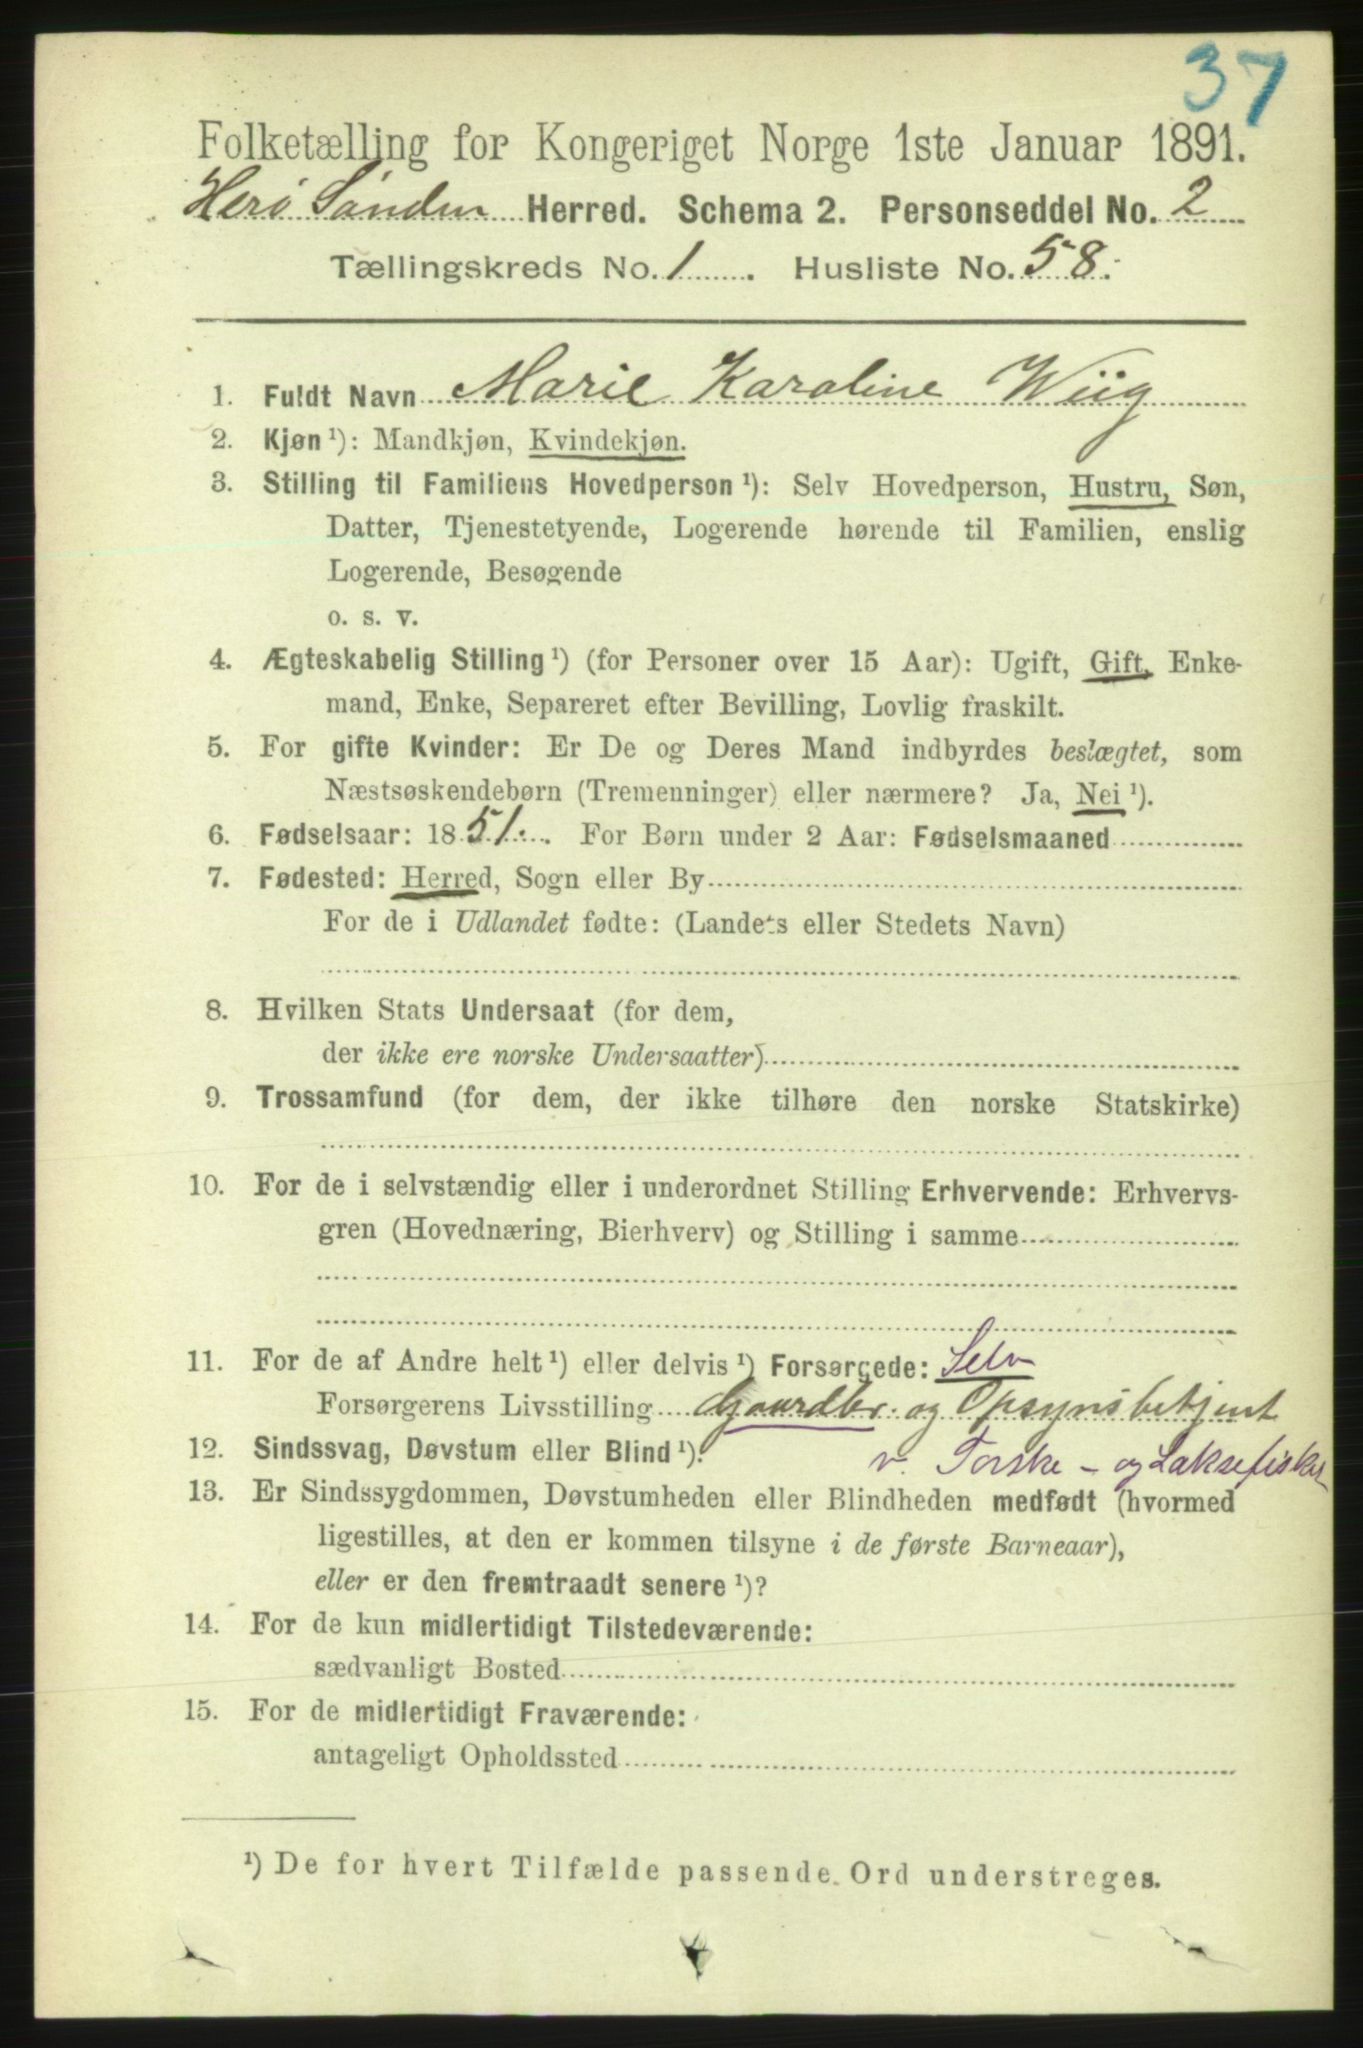 37
Folketælling for Kongeriget Norge 1ste Januar 1891.
Herø Sønden Herred. Schema 2. Personseddel No. 2
Tællingskreds No. 1. Husliste No. 58.
1. Fuldt Navn Marie Karoline Wiig
2. Kjøn ¹): Mandkjøn, Kvindekjøn.
3. Stilling til Familiens Hovedperson ¹): Selv Hovedperson, Hustru, Søn,
Datter, Tjenestetyende, Logerende hørende til Familien, enslig
Logerende, Besøgende
o. s. v.
4. Ægteskabelig Stilling ¹) (for Personer over 15 Aar): Ugift, Gift, Enke-
mand, Enke, Separeret efter Bevilling, Lovlig fraskilt.
5. For gifte Kvinder: Er De og Deres Mand indbyrdes beslægtet, som
Næstsøskendebørn (Tremenninger) eller nærmere? Ja, Nei ¹).
6. Fødselsaar: 1851. For Børn under 2 Aar: Fødselsmaaned
7. Fødested: Herred, Sogn eller By
For de i Udlandet fødte: (Landets eller Stedets Navn)
8. Hvilken Stats Undersaat (for dem,
der ikke ere norske Undersaatter)
9. Trossamfund (for dem, der ikke tilhøre den norske Statskirke)
10. For de i selvstændig eller i underordnet Stilling Erhvervende: Erhvervs-
gren (Hovednæring, Bierhverv) og Stilling i samme
11. For de af Andre helt ¹) eller delvis ¹) Forsørgede: Selv
Forsørgerens Livsstilling Gaardbr. og Opsynsbetjent
12. Sindssvag, Døvstum eller Blind ¹). v. Torske- og Laksefisker
13. Er Sindssygdommen, Døvstumheden eller Blindheden medfødt (hvormed
ligestilles, at den er kommen tilsyne i de første Barneaar),
eller er den fremtraadt senere ¹)?
14. For de kun midlertidigt Tilstedeværende:
sædvanligt Bosted
15. For de midlertidigt Fraværende:
antageligt Opholdssted
¹) De for hvert Tilfælde passende Ord understreges.